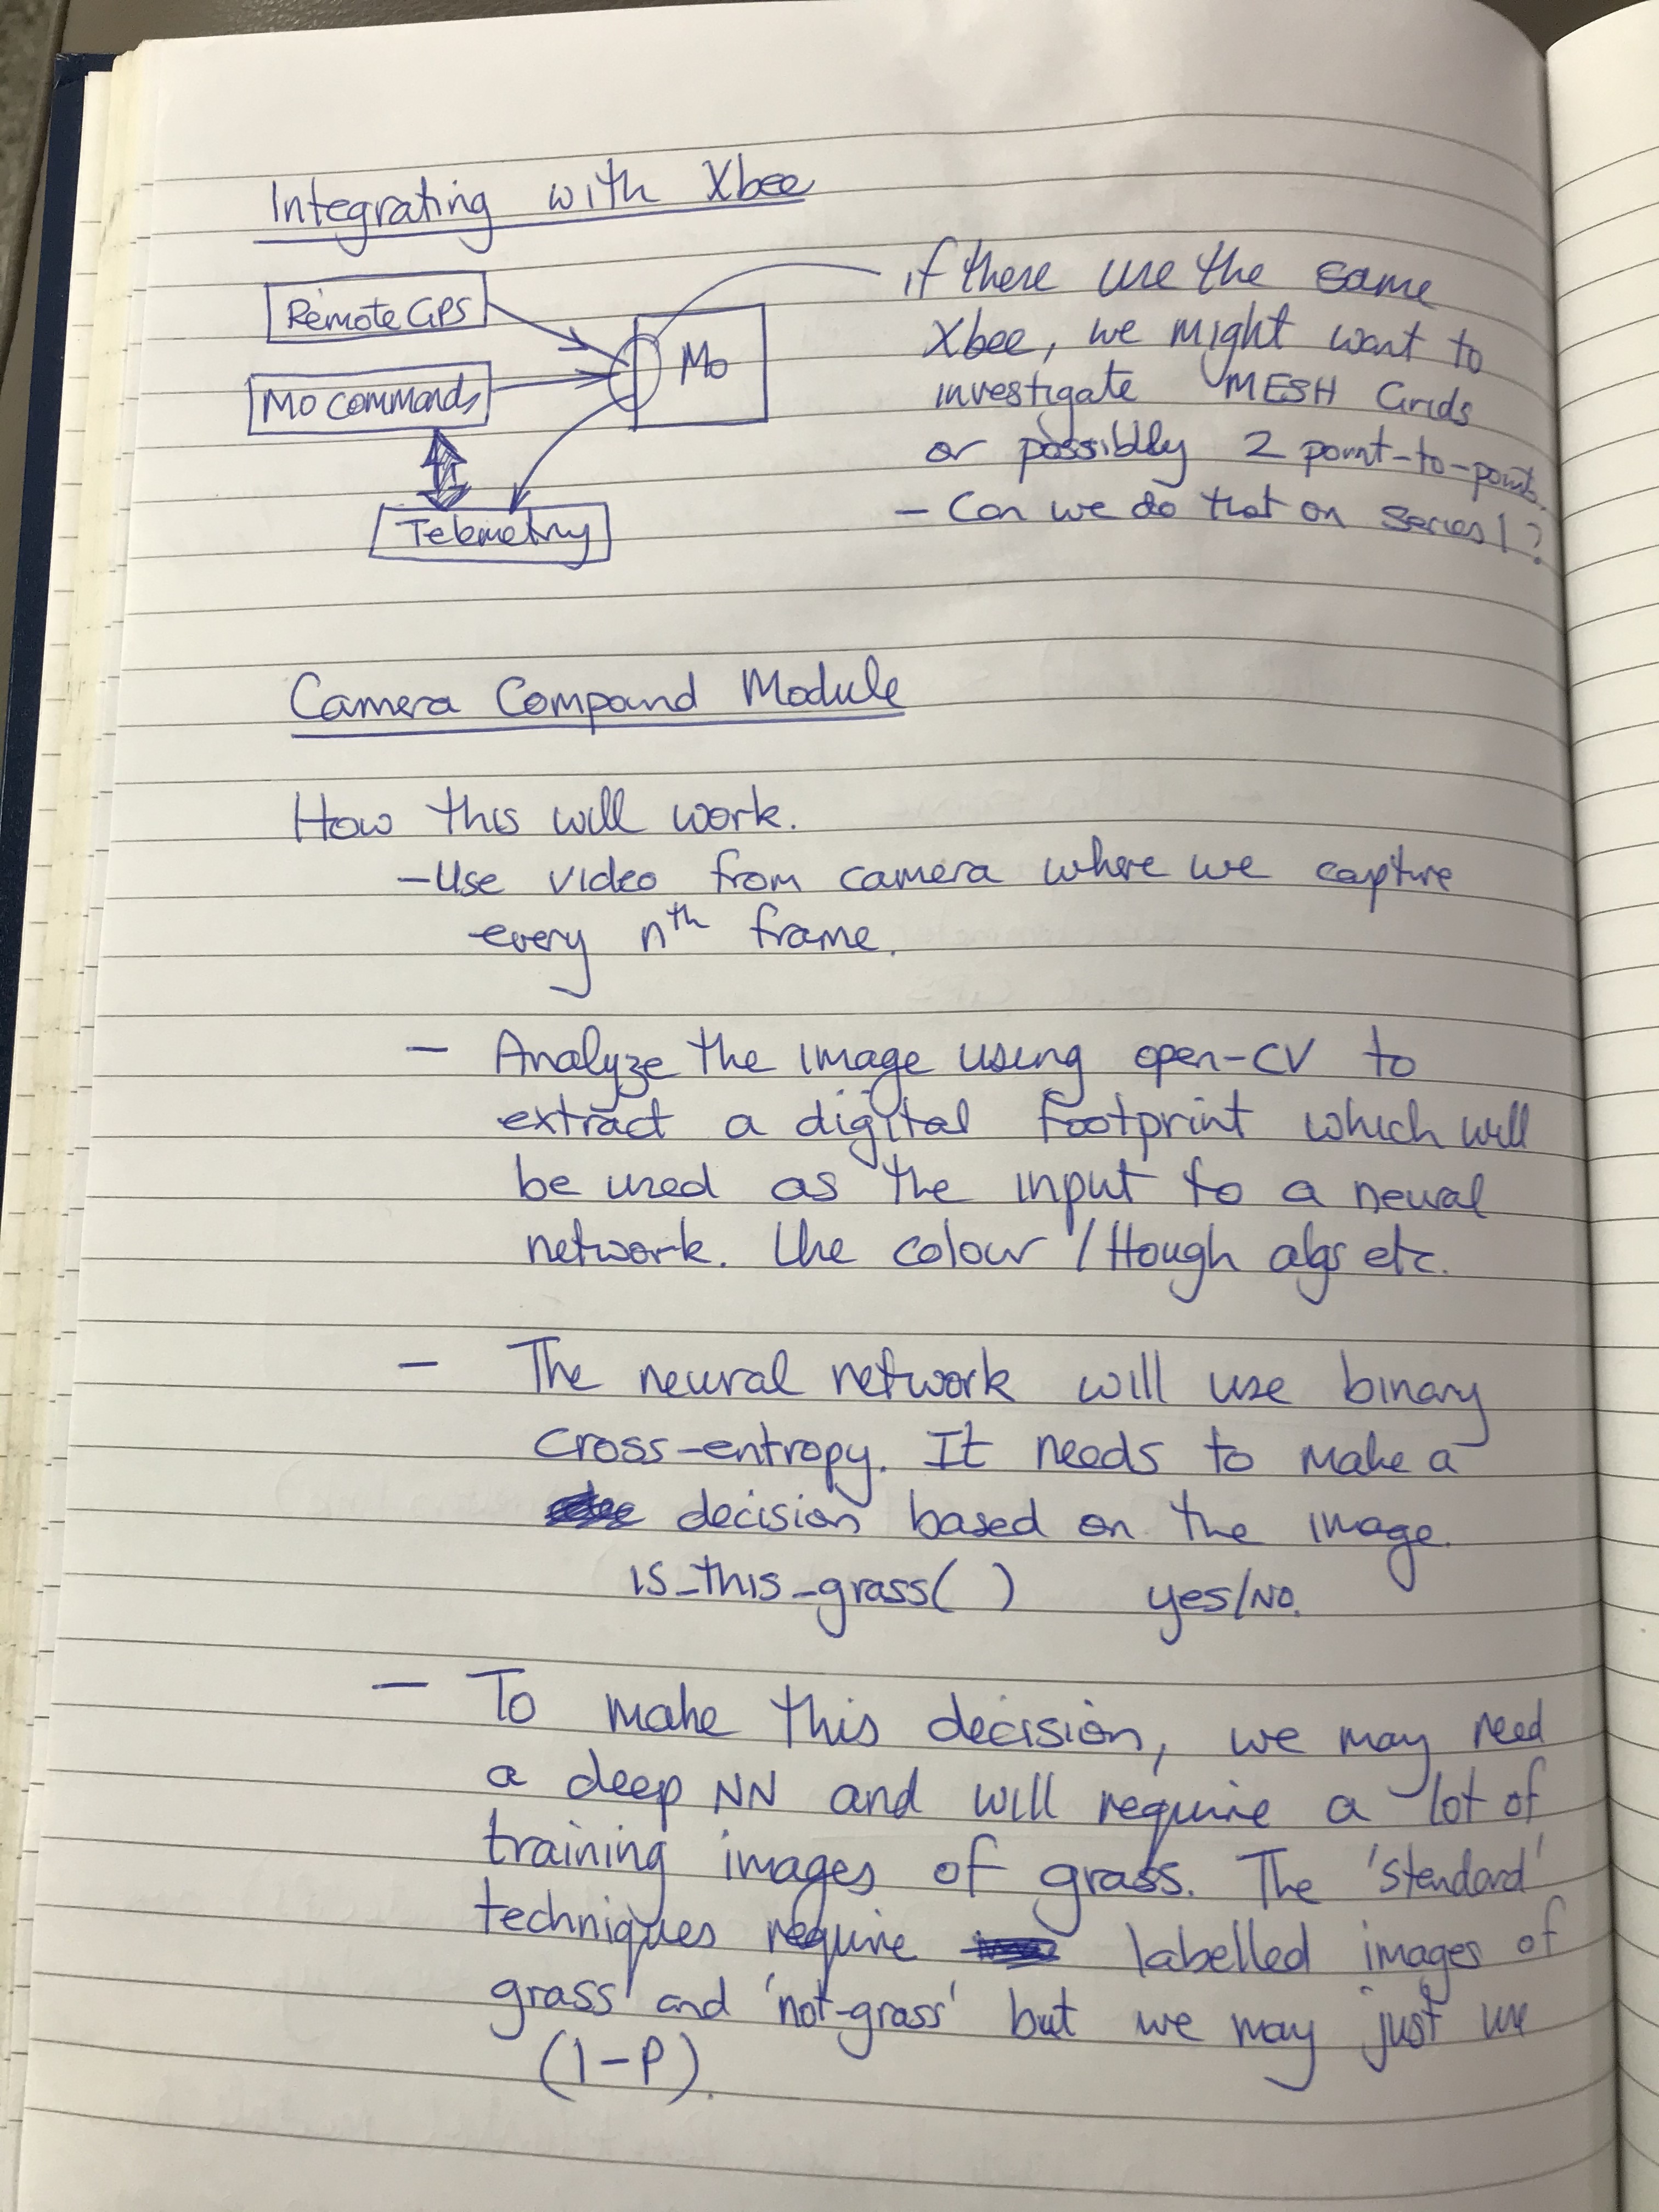 Integrating with Xbee
Remote GPS
Mo Command
Telemetry
Mo
if there use the same
Xbee, we might want to
investigate MESH Grids
or possiblly 2 point-to-points.
- Can we do that on series 1?
Camera Compound Module
How this will work.
- Use video from camera where we capture
every nth frame.
- Analyze the image using open-CV to
extract a digital footprint which will
be used as the input to a neural
network. Use colour / Hough algs etc.
- The neural network will use binary
cross-entropy. It needs to make a
decision based on the image.
is_this_grass( ) yes/No.
- To make this decision, we may need
a deep NN and will require a lot of
training images of grass. The 'standard'
techniques require labelled images of
grass and 'not-grass' but we may just use
(1-P).